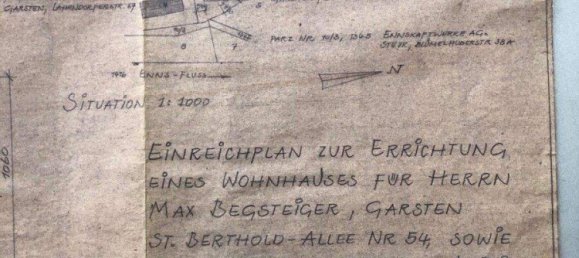 GARSTEN, LAHNDORFERSTR. 67
8
7
PARZ NR. 10/3, 134B ENNSKRAFTWERKE AG.
STEYR, BLÜMELHUBERSTR 38A
ENNS-FLUSS
N
SITUATION 1:1000
1060
EINREICHPLAN ZUR ERRICHTUNG
EINES WOHNHAUSES FÜR HERRN
MAX BEGSTEIGER, GARSTEN
ST. BERTHOLD-ALLEE NR 54, SOWIE